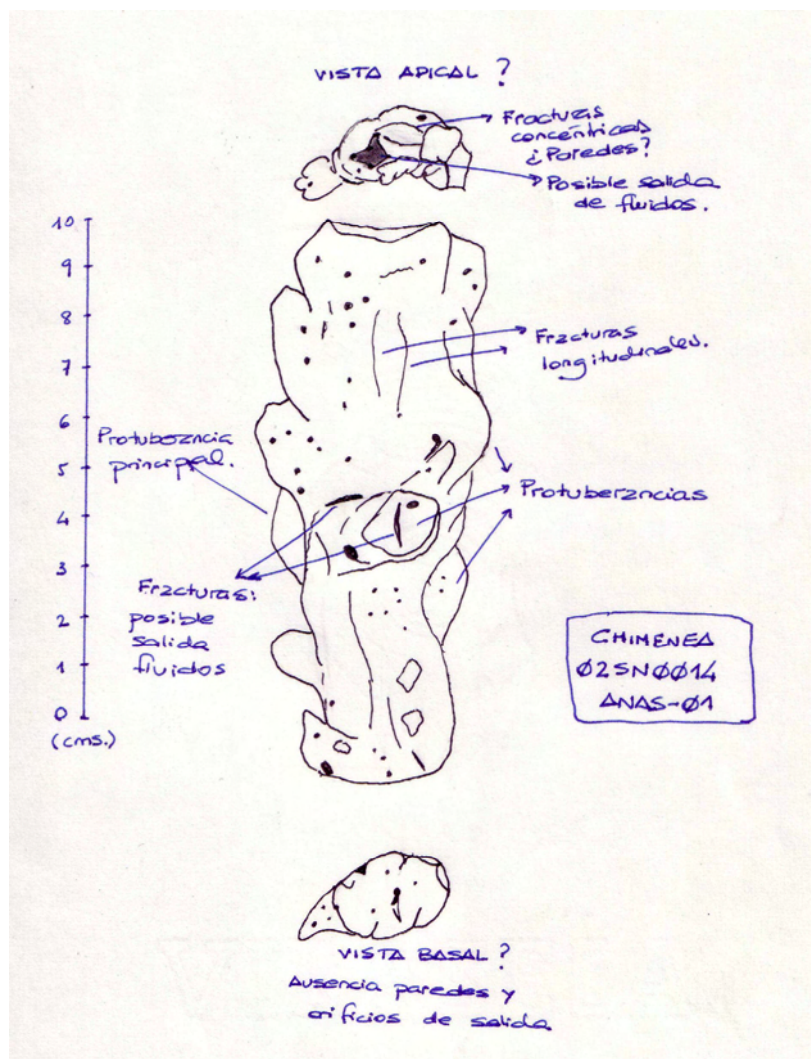 VISTA APICAL ?
Fracturas
concéntricas
¿Paredes?
Posible salida
de fluidos.
10
9
8
7
6
5
4
3
2
1
0
(cms.)
Fracturas
longitudinales.
Protuberancia
principal.
Protuberancias
Fracturas:
posible
salida
fluidos
CHIMENEA
Ø2SNØØ14
ANAS-Ø1
VISTA BASAL ?
Ausencia paredes y
orificios de salida